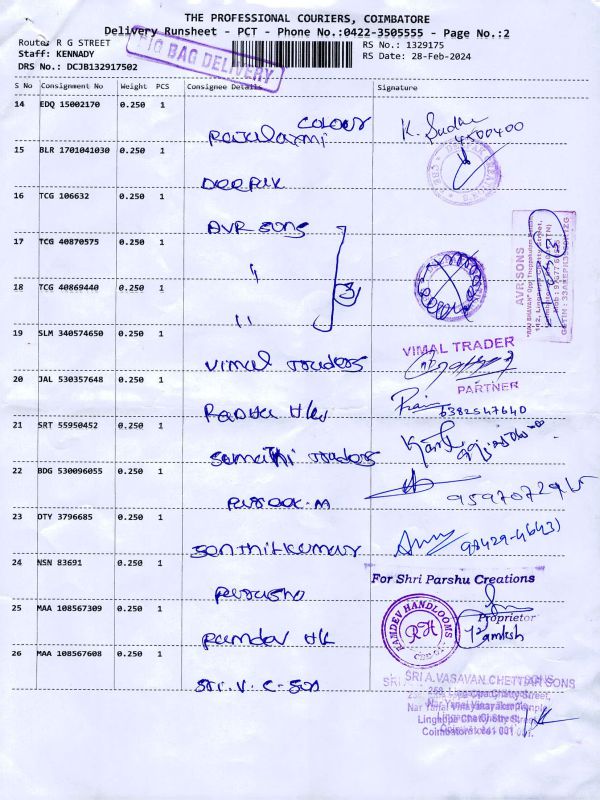 THE PROFESSIONAL COURIERS, COIMBATORE
Delivery Runsheet - PCT - Phone No.:0422-3505555 - Page No.:2
Route: R G STREET RS No.: 1329175
Staff: KENNADY RS Date: 28-Feb-2024
DRS No.: DCJB132917502
BIG BAG DELIVERY
S No Consignment No Weight PCS Consignee Details Signature
14 EDQ 15002170 0.250 1
colour
Rajalaxmi
15 BLR 1701041030 0.250 1
Deepik
16 TCG 106632 0.250 1
AVR Sons
17 TCG 40870575 0.250 1
"
18 TCG 40869440 0.250 1
"
3
AVR SONS
19 SLM 340574650 0.250 1
Vimal Traders
VIMAL TRADER
PARTNER
20 JAL 530357648 0.250 1
6382547640
21 SRT 55950452 0.250 1
Sumathi Traders
22 BDG 530096055 0.250 1
23 OTY 3796685 0.250 1
Senthilkumar
24 NSN 83691 0.250 1
For Shri Parshu Creations
Proprietor
25 MAA 108567309 0.250 1
Ramdev Hl
RAMDEV HANDLOOMS
RH
CBE-01
26 MAA 108567608 0.250 1
Sri. V. C - Son
SRI A.VASAVAN CHETTIAR SONS